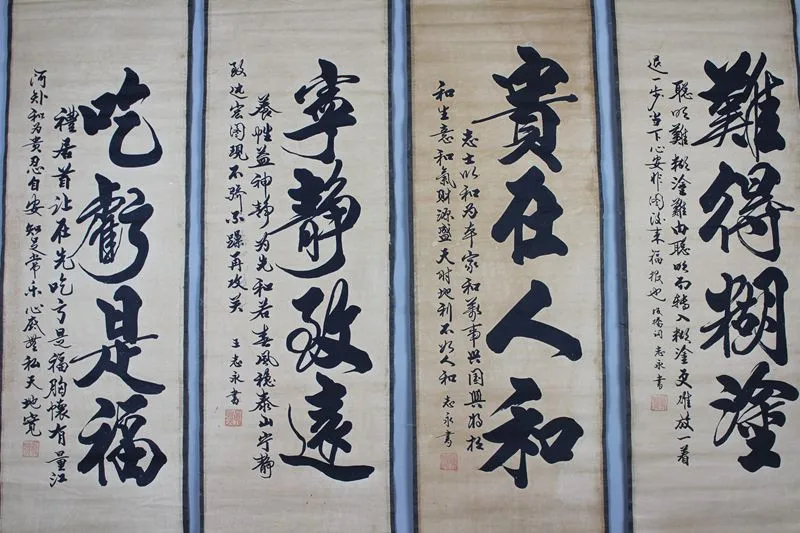 難得糊塗
聰明難糊塗難由聰明而轉入糊塗更難放一着
退一步当下心安非图後来福报也 板橋词 志永書
貴在人和
志士以和为本家和萬事興国興将相
和生意和氣財源盛天时地利不如人和 志永書
寧靜致遠
养性益神静为先和若春风穩泰山宁静
致远宏图現不骄不躁再攻关 王志永書
吃虧是福
禮居首让在先吃亏是福胸懷有量江
河纳和为贵忍自安知足常乐心底無私天地寬